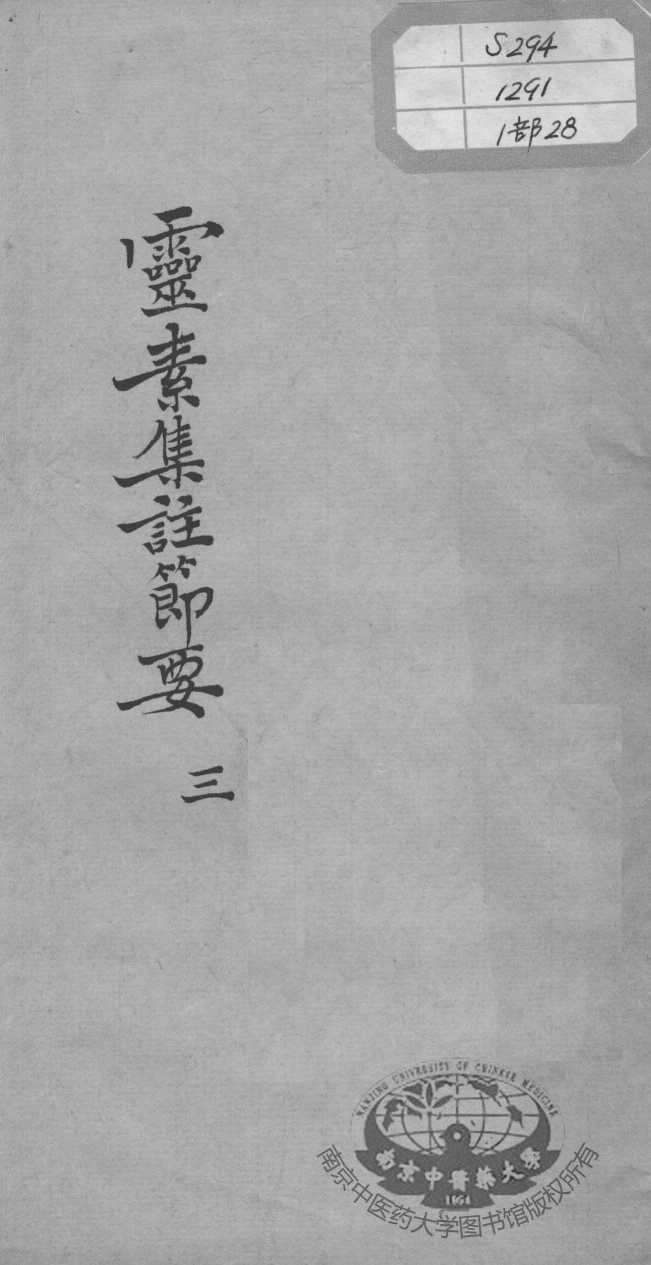 S294
1291
1部28
靈素集註節要
三
NANJING UNIVERSITY OF CHINESE MEDICINE
南京中醫藥大學
1954
南京中医药大学图书馆版权所有